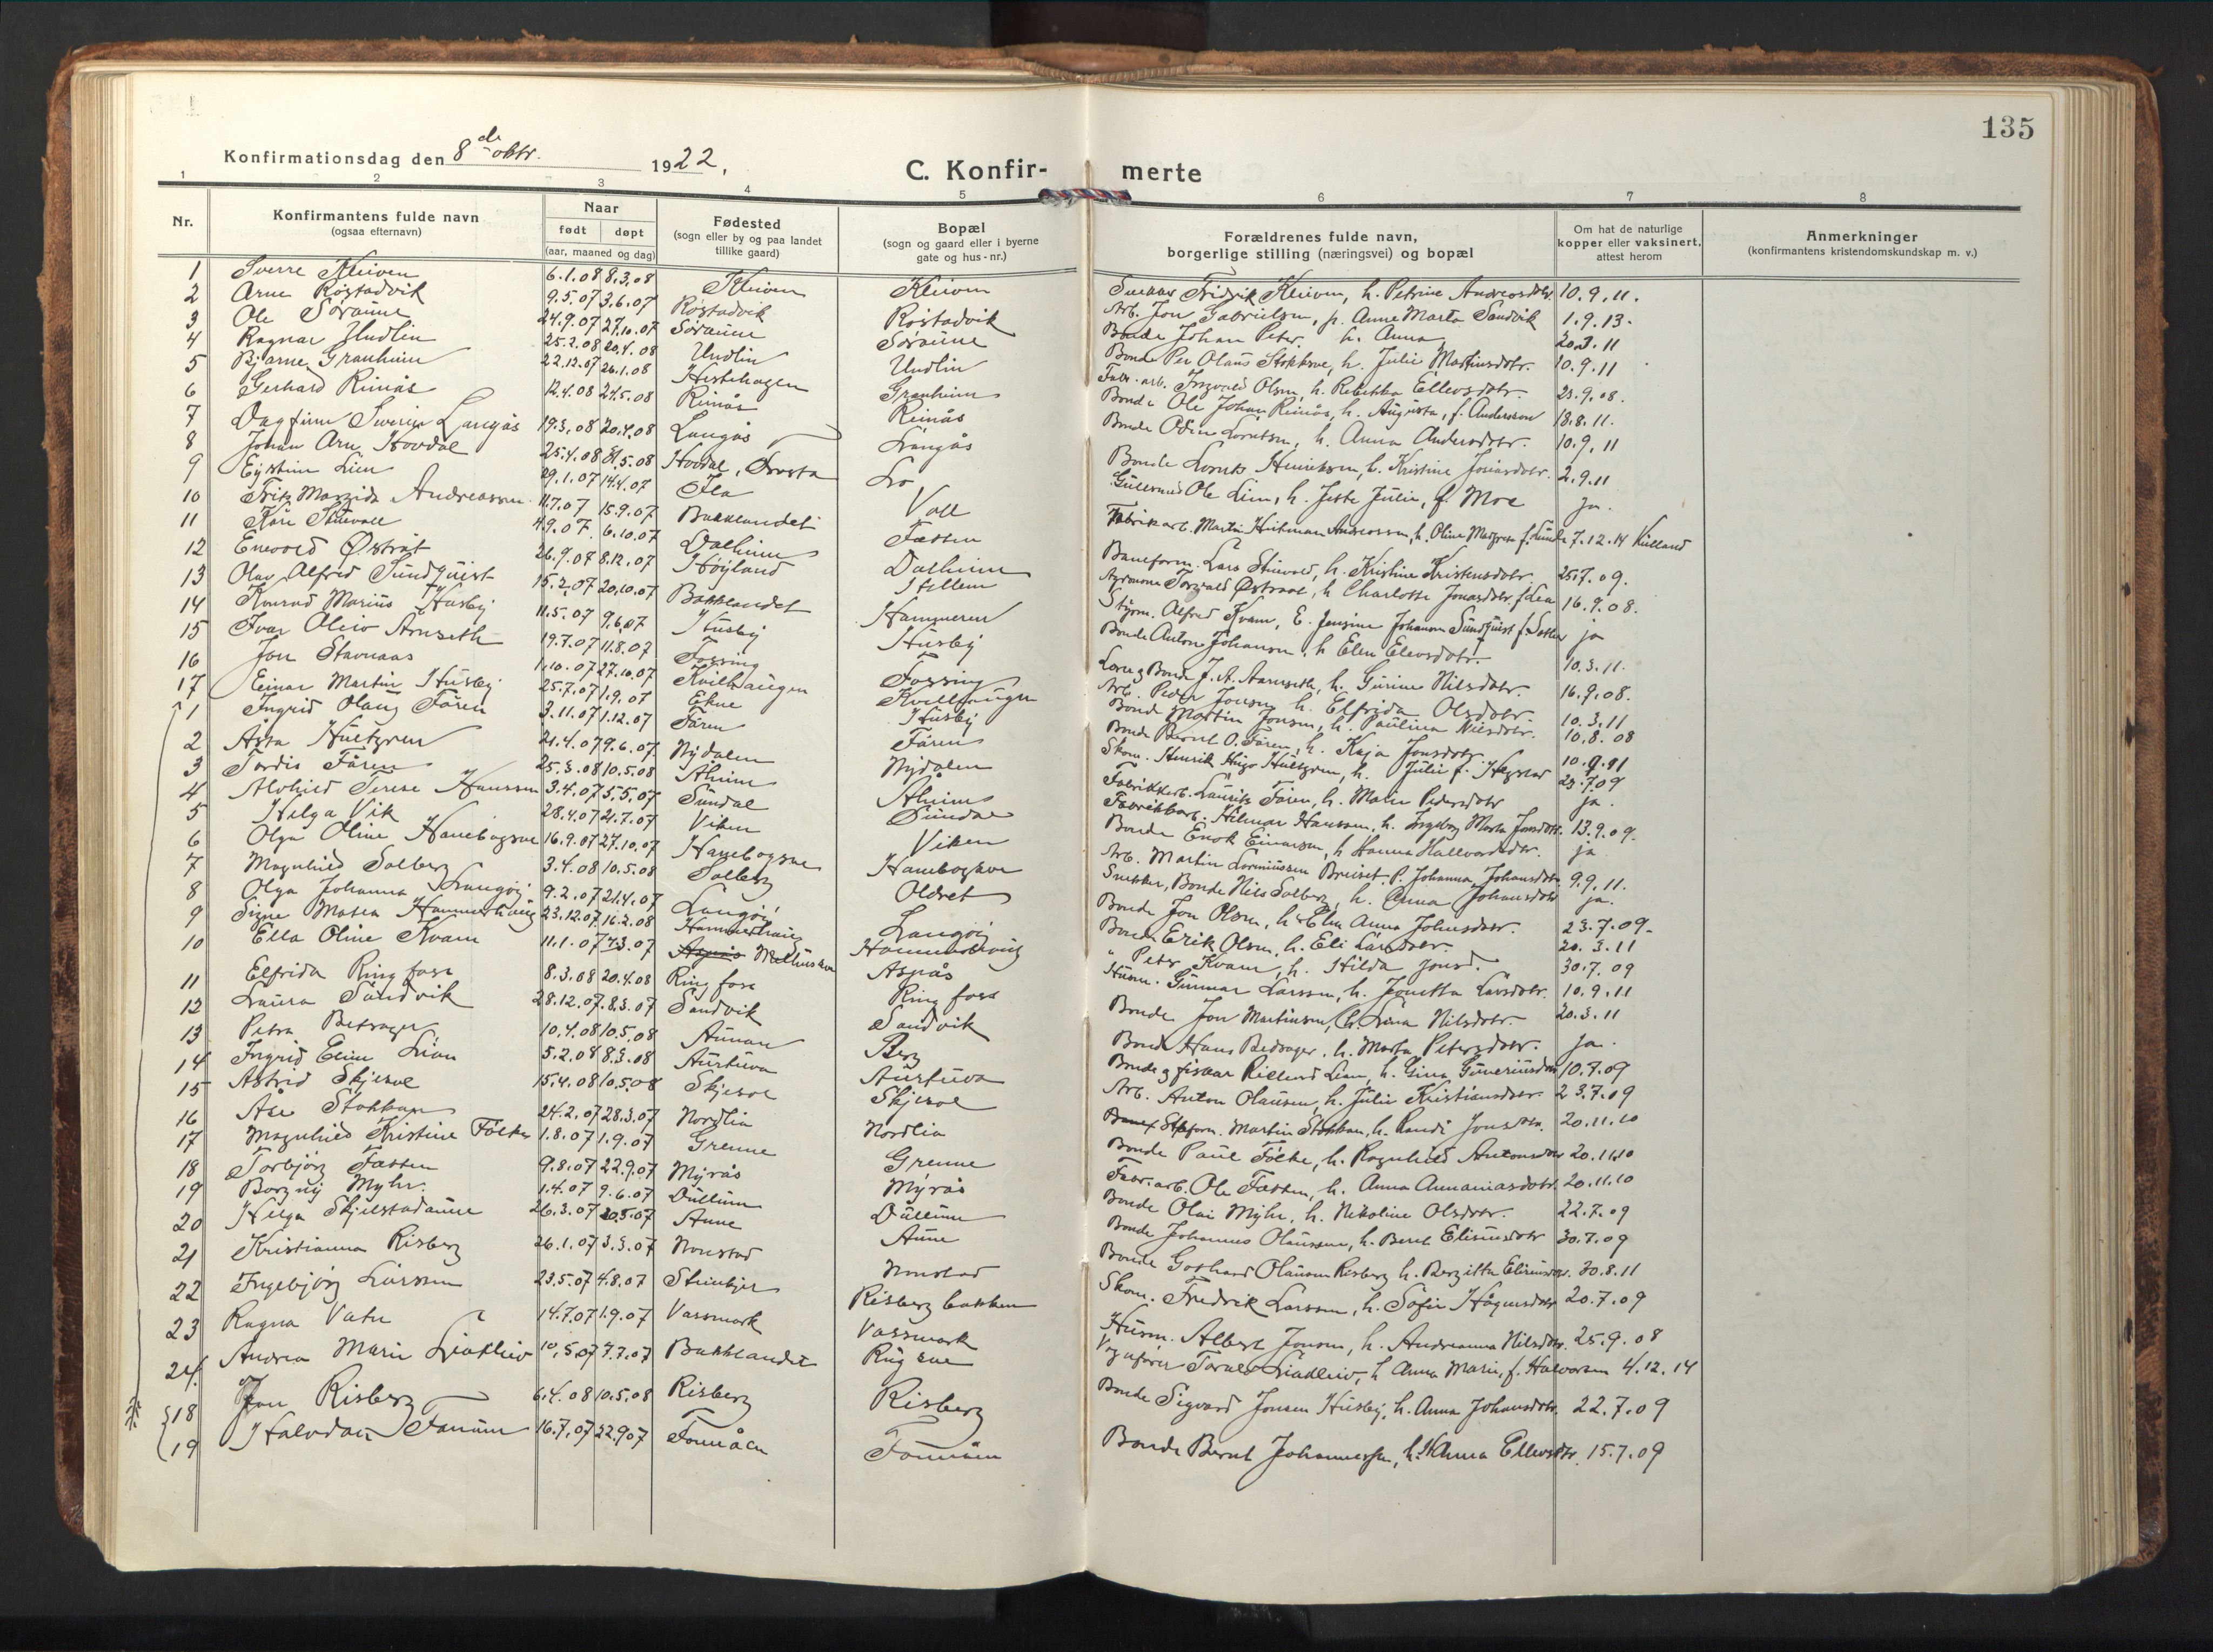 135
Konfirmationsdag den 8de oktr. 1922.
C. Konfir- merte
1 2 3 4 5 6 7 8
Nr.
Konfirmantens fulde navn
(ogsaa efternavn)
Naar
født døpt
(aar, maaned og dag)
Fødested
(sogn eller by og paa landet
tillike gaard)
Bopæl
(sogn og gaard eller i byerne
gate og hus-nr.)
Forældrenes fulde navn,
borgerlige stilling (næringsvei) og bopæl
Om hat de naturlige
kopper eller vaksinert,
attest herom
Anmerkninger
(konfirmantens kristendomskundskap m. v.)
1 Sverre Kleiven 6.1.08 8.3.08 Kleiven Kleiven Fridrik Kleiven, h. Petrine Andreasdtr. 10.9.11.
2 Arne Røstadvik 9.5.07 3.6.07 Røstadvik Røstadvik Arb. Jon Gabrielsen, p. Anne Marta Sandvik 1.9.13.
3 Ole Søraune 24.9.07 27.10.07 Søraune Søraune Bonde Johan Peter. h. Anna 20.3.11
4 Ragnar Undlin 25.2.08 20.4.08 Undlin Undlin Bonde Per Olaus Stokkve, h. Julie Martinusdtr. 10.9.11
5 Bjarne Granheim 22.12.07 26.1.08 Hestehagen Granheim Fabr. arb. Ingvald Olsen, h. Rebekka Ellevsdtr. 23.9.08.
6 Gerhard Rinås 12.4.08 24.5.08 Rinås Rinås Bonde Ole Johan Rinås, h. Augusta, f. Andersson 18.8.11.
7 Dagfinn Sverre Langås 19.3.08 20.4.08 Langås Langås Bonde Odin Lorntsen, h. Anna Andersdtr. 10.9.11
8 Johan Arn. Hovdal 25.4.08 31.5.08 Hovdal, Ørsta Lo Bonde Lornts Henriksen, h. Kristine Josiasdtr. 2.9.11
9 Eystein Lien 29.1.07 14.4.07 Ila Vall Gullsmed Ole Lien, h. Jette Julie, f. Moe Ja.
10 Fritz Margido Andreassen 11.7.07 15.9.07 Baklandet Fætten Fabrikarb. Martin Hitman Andreassen, h. Oline Margrete f. Lund 7.12.14 Kulland
11 Kåre Stuevold 4.9.07. 6.10.07 Dalheim Dalheim Baneform. Lars Stuevold, h. Kristine Kristensdtr. 25.7.09.
12 Enevold Østråt 26.9.07 8.12.07 Høyland Stellem Agronom Torvald Østraat, h. Charlotte Jonasdtr. f. Lea 16.9.08.
13 Olav Alfred Sundquist 15.2.07 20.10.07 Bakklandet Hammeren Styrm. Alfred Kvam, E. Jensine Johanson Sundquist f. ja
14 Konrad Marius Husby 11.5.07 9.6.07 Husby Husby Bonde Anton Johanson, h. Elen Elevsdtr. 10.3.11.
15 Ivar Oliver Arnseth 19.7.07 11.8.07 Fossing Fossing Bonde J. A. Aarnseth, h. Gurine Nilsdtr. 16.9.08.
16 Jon Stavnaas 1.10.07 27.10.07 Kvilhaugen Kvilhaugen Arb. Peder Jonsen, h. Elfrida Olsdtr. 10.3.11
17 Einar Martin Husby 25.7.07 1.9.07 Ekne Husby Bonde Martin Jonsen, h. Paulina Nilsdtr. 10.8.08
1 Ingrid Olaug Fåren 3.11.07 1.12.07 Fåren Fåren Bonde Bernt O. Fåren, h. Kaja Jonsdtr. 10.9.11
2 Asta Hultgren 21.4.07 9.6.07 Nydalen Nydalen Skom. Henrik Hugo Hultgren, h. Julie f. Hegstad 23.7.09
3 Tordis Fåren 25.3.08 10.5.08 Åheim Åheim Fabrikkarb. Laurits Fåren, h. Malie Pedersdtr ja.
4 Alvhild Terese Hanssen 3.4.07 5.5.07 Sundal Sundal Fabrikkarb. Hilmar Hanssen, h. Ingeborg Marta Jonsdtr. 13.9.09.
5 Helga Vik 28.4.07 21.7.07 Viken Viken Bonde Enok Einarsen, h. Hanna Hallvardsdtr. ja
6 Olga Oline Hanebogsve 16.9.07 27.10.07 Hanebogsve Hanebogsve Arb. Martin Breiset. P. Johanna Johansdtr. 9.9.11.
7 Magnhild Solberg 3.4.08 10.5.08 Solberg Oldret Snekker, Bonde Nils Solberg, h. Anna Johansdtr ja.
8 Olga Johanna Langøy 9.2.07 21.4.07 Langøy Langøy Bonde Jon Olsen, h. Elen Anna Johnsdtr. 23.7.09.
9 Signe Matea Hammerhaug 23.12.07 16.2.08 Hammerhaug Hammerhaug Bonde Erik Olsen, h. Eli Larsdtr. 20.3.11
10 Ella Oline Kvam 11.1.07 7.3.07 Aspås Melhuskva Aspås " Peter Kvam, h. Hilda Jonsd. 30.7.09
11 Elfrida Ringfoss 8.3.08 20.4.08 Ringfoss Ringfoss Husm. Gunnar Larssen, h. Jonetta Larsdtr. 10.9.11
12 Laura Sandvik 28.12.07. 8.3.07 Sandvik Sandvik Bonde Jon Martinsen, h. Lina Nilsdtr. 20.3.11
13 Petra Betsager 10.4.08 10.5.08 Aunan Berg Bonde Hans Bedsager, h. Marta Petersdtr. Ja.
14 Ingrid Eline Lian 5.2.08 8.3.08 Aurtuva Aurtuva Bonde og fisker Rikhard Lian, h. Gina Guneriusdtr 10.7.09
15 Astrid Skjesol 15.4.08 10.5.08 Skjesol Skjesol Arb. Anton Olausen, h. Julie Kristiansdtr. 23.7.09
16 Åse Stokkan 24.2.07 28.3.07 Nordlia Nordlia Martin Stokkan, h. Randi 20.11.10
17 Magnhild Kristine Følke 1.8.07 1.9.07 Grenne Grenne Bonde Paul Følke, h. Ragnhild Antonsdtr 20.11.10
18 Torbjørg Fætten 9.8.07 22.9.07 Myrås Myrås Fabr. arb. Ole Fætten, h. Anna Annaniasdtr. 20.11.10
19 Borgny Myhr. 1.4.07 9.6.07 Dullum Dullum Bonde Olai Myhr, h. Nikoline Olsdtr. 22.7.09
20 Helga Skjelstadaune 26.3.07 20.5.07 Aune Aune Bonde Johannes Olaussen, h. Beret Eliseusdtr 30.7.09
21 Kristianna Risberg 26.1.07 3.3.07 Nonstad Nonstad Bonde Gothard Olausen Risberg h. Bergitta Eliseusdtr. 30.8.11
22 Ingebjørg Larssen 23.5.07 4.8.07 Steinkjer Risberg bakken Skom. Fredrik Larssen, h. Sofie Hågensdtr 20.7.09
23 Ragna Vatn 14.7.07 1.9.07 Vassmark Vassmark Husm. Albert Jonsen, h. Andreanna Nilsdtr. 25.9.08
24. Andrea Marie Liaklev 10.5.07 7.7.07 Bakklandet Rugsve Torvald Liaklev, h. Anna Marie, f. Halvorsen 4.12.14
18 Jon Risberg 6.4.08 10.5.08 Risberg Risberg Bonde Sigvard Jonsen Husby, h. Anna Johansdtr. 22.7.09
19 Halvdan Fånum 16.7.07 22.9.07 Bonde Bernt Johannessen, h. Hanna Ellevsdtr. 15.7.09